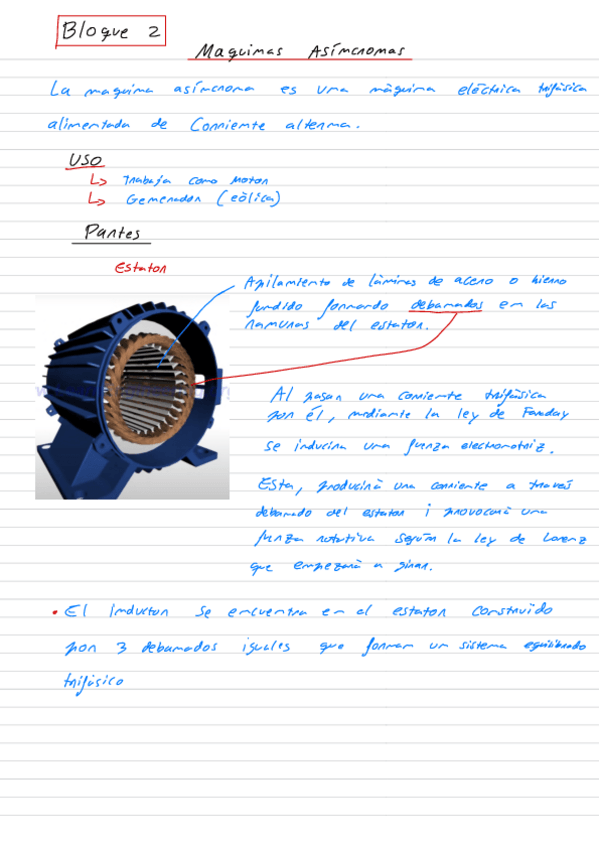 Bloque 2
Maquinas Asíncronas
La maquina asíncrona es una máquina eléctrica trifásica
alimentada de Corriente alterna.
USO
↳ Trabaja como motor
↳ Generador (eòlica)
Partes
Estator
Apilamiento de làminas de acero o hierro
fundido formando debanados en las
ranuras del estator.
Al pasar una corriente trifásica
por él, mediante la ley de Faraday
se inducira una fuerza electromotriz.
Esta, producirà una corriente a través
debanado del estator i provocarà una
funza rotativa según la ley de Lorenz
que empezarà a girar.
• El inductor se encuentra en el estator construido
por 3 debanados iguales que forman un sistema equilibrado
trifàsico